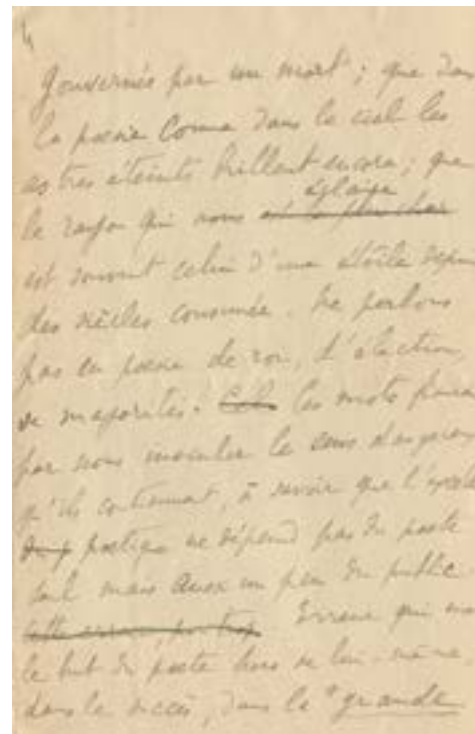 4
gouvernés par un mort ; que dans
la poésie comme dans le ciel les
astres éteints brillent encore ; que
le rayon qui nous éclaire
est souvent celui d'une étoile depuis
des siècles consumée. Ne parlons
pas en poésie de roi, d'élection,
de majorités ! Cela les mots
par nous inoculer le sens dangereux
qu'ils contiennent, à savoir que l'
poétique ne dépend pas du poète
seul mais aussi un peu du public.
Erreur qui
le but du poète hors de lui-même,
dans le succès, dans la "grande